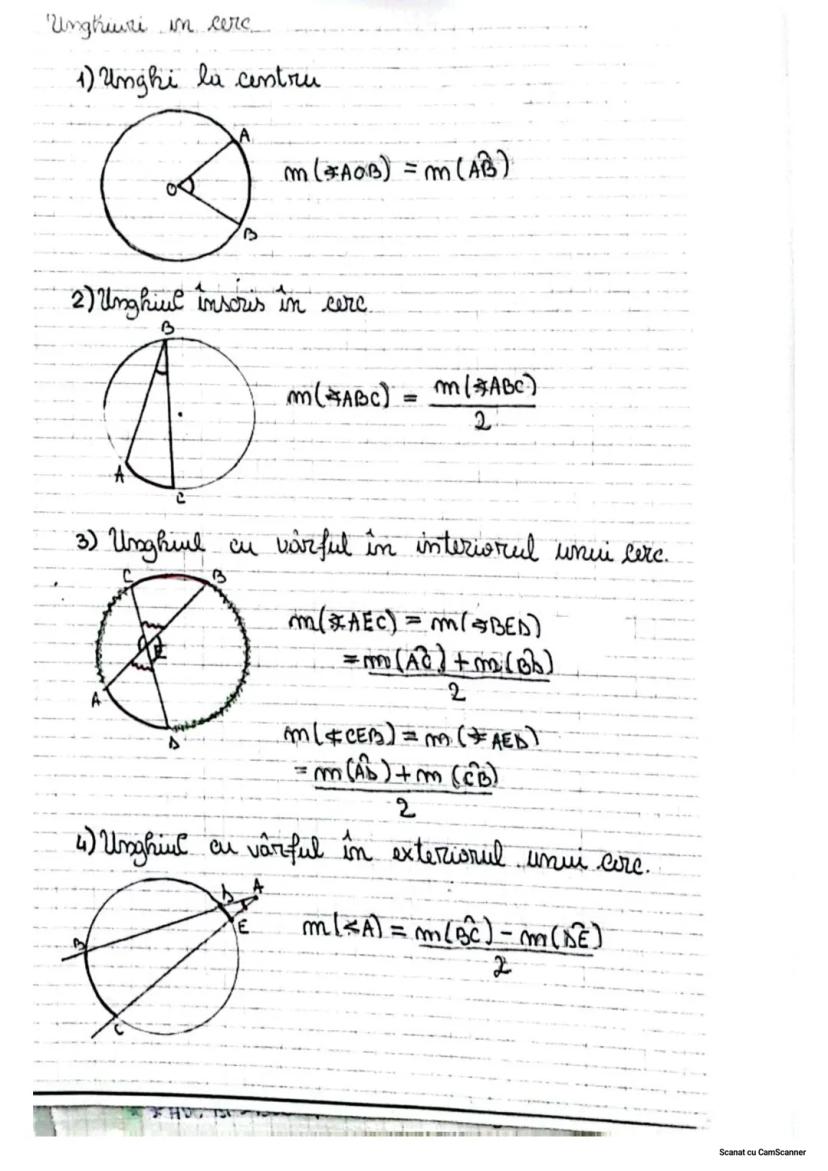 Unghiuri in cerc
1) Unghi la centru
A
O
B
m(∢AOB) = m(A͡B)
2) Unghiul înscris în cerc
B
A
C
m(∢ABC) = m(∢ABC)
2
3) Unghiul cu vârful în interiorul unui cerc.
C B
E
A
D
m(∢AEC) = m(∢BED)
= m(A͡C) + m(B͡D)
2
m(∢CEB) = m(∢AED)
= m(A͡D) + m(C͡B)
2
4) Unghiul cu vârful în exteriorul unui cerc.
D A
E
B
C
m(∢A) = m(B͡C) - m(D͡E)
2
Scanat cu CamScanner